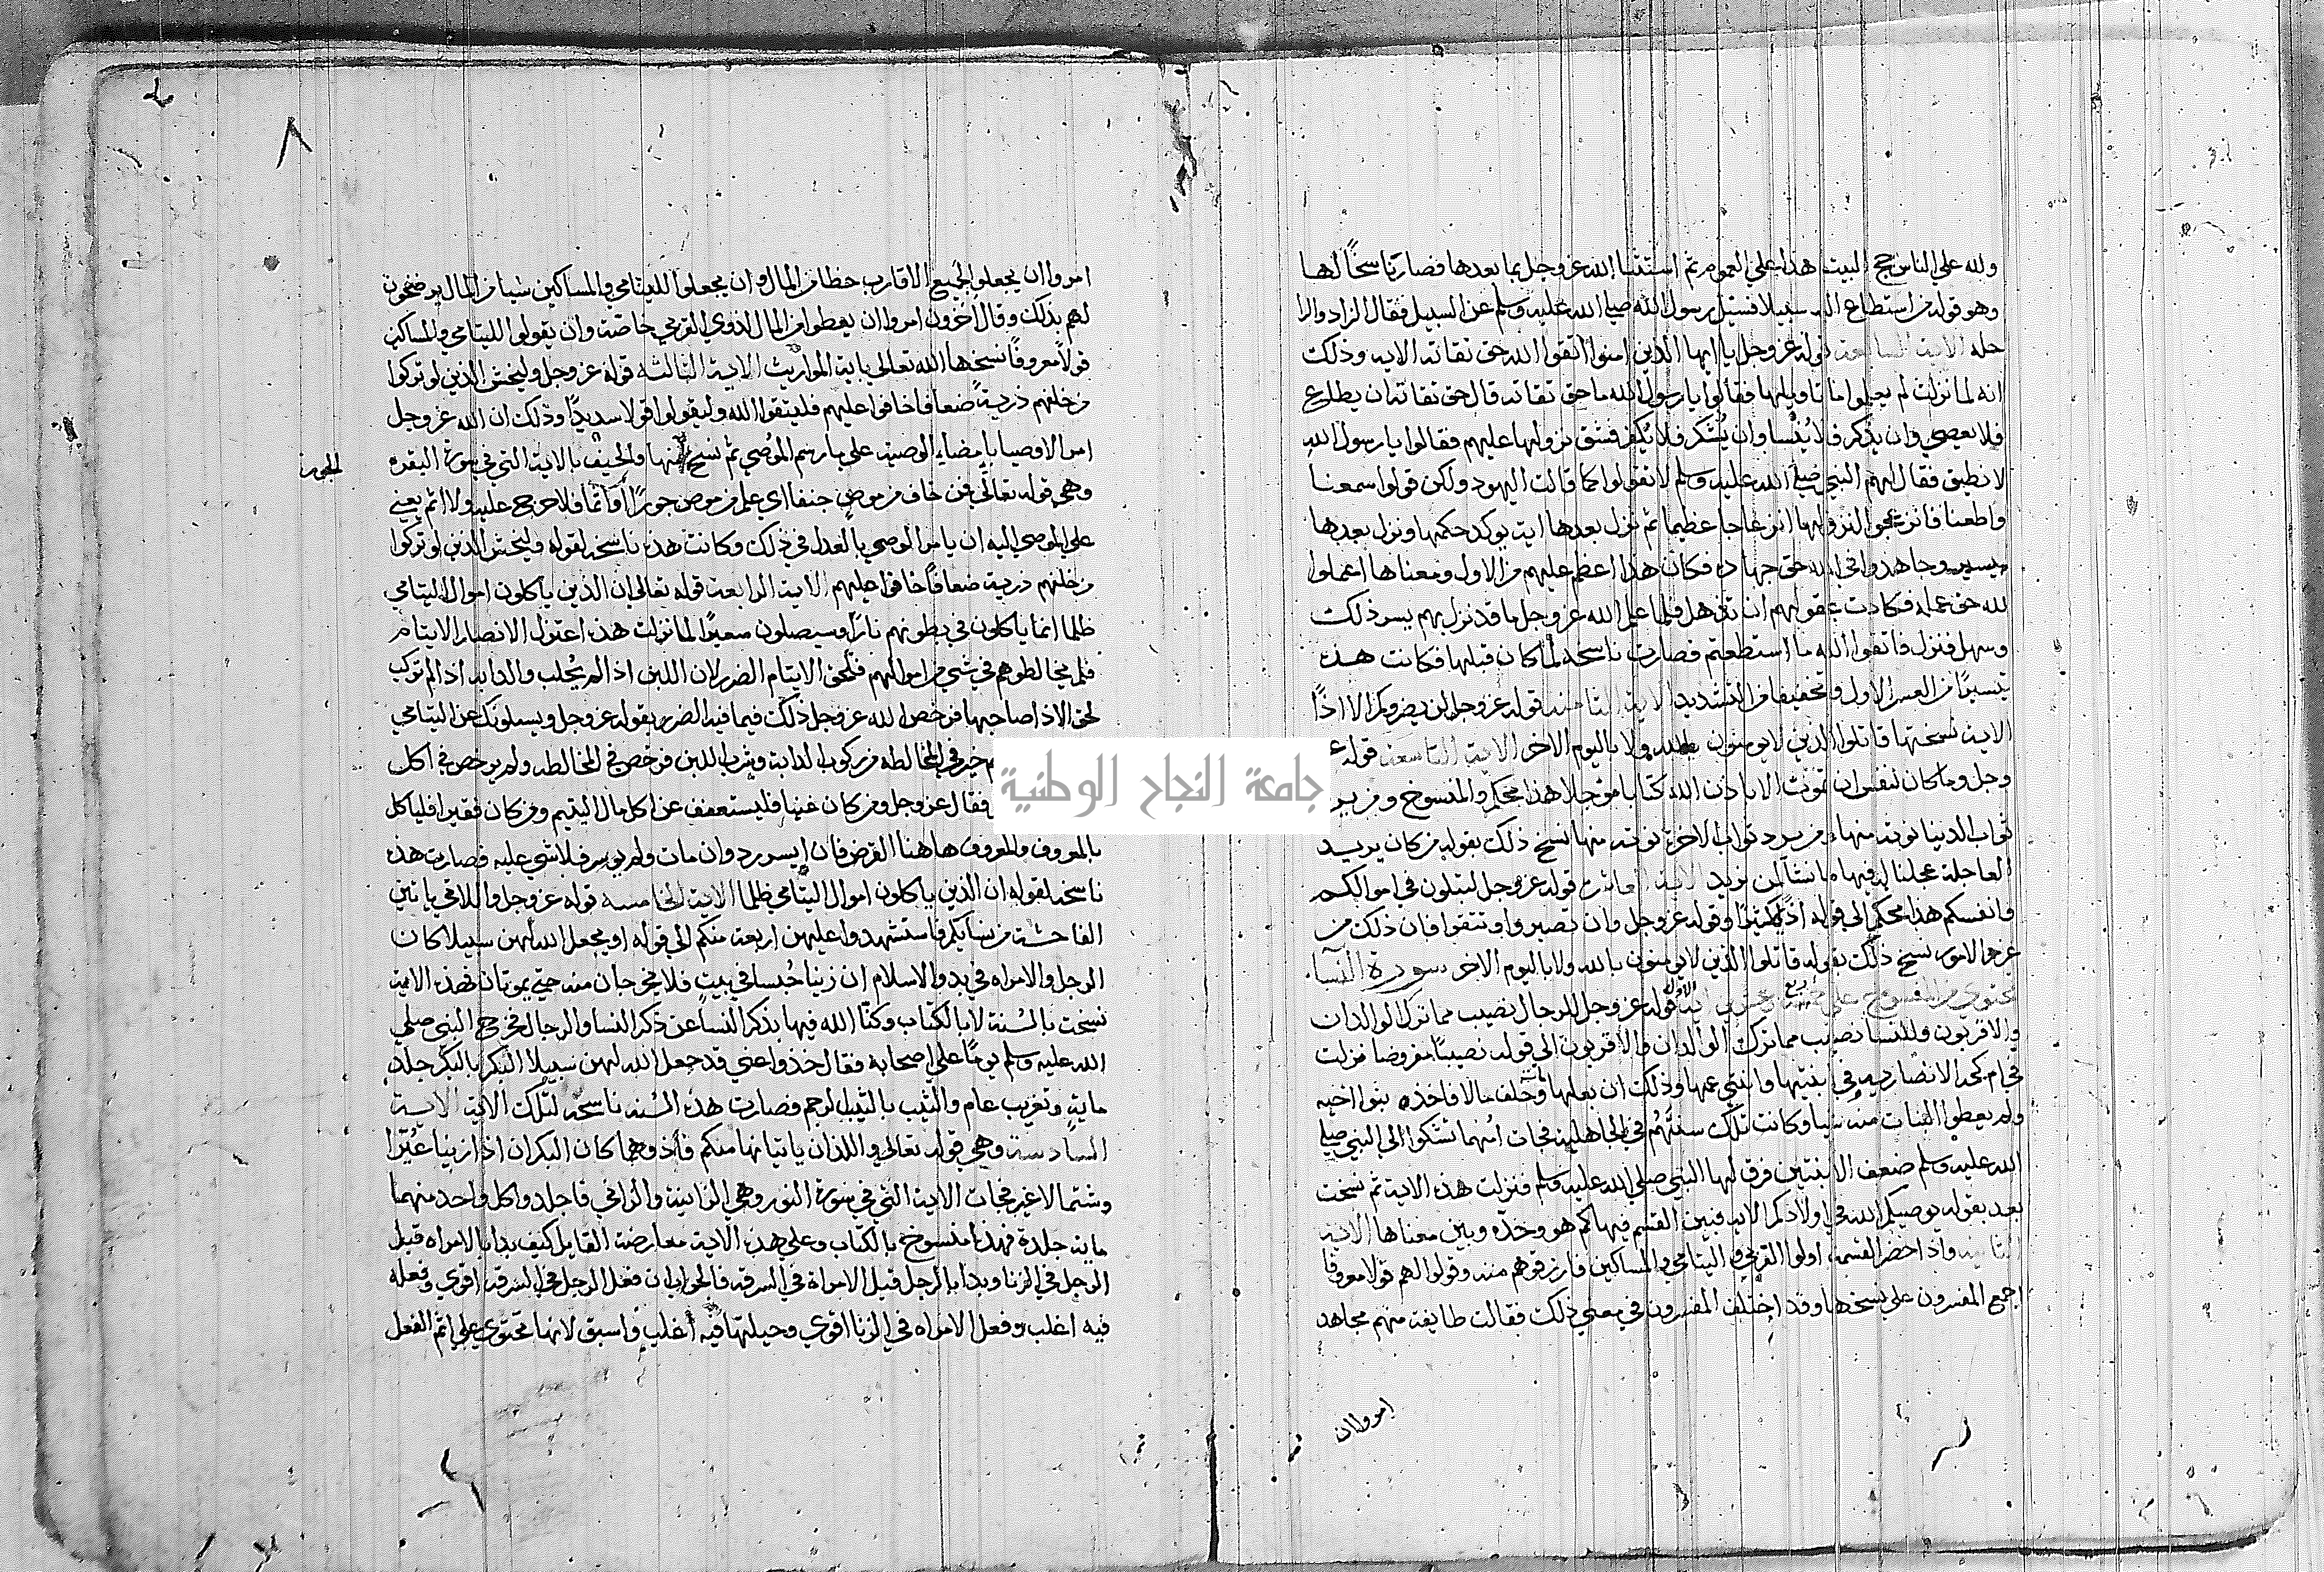 ولله علي الناس حج البيت هذا علي العموم ثم استثنا الله عز وجل بما بعدها فصار ناسخًا لها
وهو قوله من استطاع اليه سبيلا فسئل رسول الله صلي الله عليه وسلم عن السبيل فقال الزاد والرا
حله الاية السابعة قوله عز وجل يا ايها الذين امنوا اتقوا الله حق تقاته الاية وذلك
انه لما نزلت لم يعلموا ما تاويلها فقالوا يا رسول الله ما حق تقاته قال حق تقاته ان يطاع
فلا يعصي وان يذكر فلا يُنسا وان يُشكر فلا يُكفر فشق نزولها عليهم فقالوا يا رسول الله
لا نطيق فقال لهم النبي صلي الله عليه وسلم لا تقولوا كما قالت اليهود ولكن قولوا سمعنا
واطعنا فانزعجوا لنزولها انزعاجا عظيما ثم نزل بعدها اية يوكد حكمها ونزل بعدها
بيسير وجاهدوا في الله حق جهاده فكان هذا اعظم عليهم من الاول ومعناها اعملوا
لله حق عمله فكادت عقولهم ان تذهل فلما علم الله عز وجل ما قد نزل بهم يسر ذلك
وسهل فنزل فاتقوا الله ما استطعتم فصارت ناسخة لما كان قبلها فكانت هذه
تيسيرًا من العسر الاول وتخفيفا من التشديد الاية الثامنة قوله عز وجل لن يضروكم الا اذًا
الاية نسختها قاتلوا الذين لا يومنون بالله ولا باليوم الاخر الاية التاسعة قوله عز
وجل وما كان لنفس ان تموت الا باذن الله كتابا موجلا هذا محكم والمنسوخ ومن يرد
ثواب الدنيا نوته منها ومن يرد ثواب الاخرة نوته منها نسخ ذلك بقوله من كان يريد
العاجلة عجلنا له فيها ما نشا لمن نريد الاية العاشرة قوله عز وجل لتبلون في اموالكم
وانفسكم هذا محكم الي قوله اذًي كثيرًا وقوله عز وجل وان تصبروا وتتقوا فان ذلك من
عزم الامور نسخ ذلك بقوله قاتلوا الذين لا يومنون بالله ولا باليوم الاخر سورة النسا
تحتوي من المنسوخ علي اربع وعشرين اية الاولة قوله عز وجل للرجال نصيب مما ترك الوالدان
والاقربون وللنسا نصيب مما ترك الوالدان والاقربون الي قوله نصيبًا مفروضا نزلت
في ام كحه الانصارية في ابنتيها وابنتي عمها وذلك ان بعلها مات وخلف مالا فاخذه بنوا اخيه
ولم يعطوا البنات منه شيا وكانت تلك سنتهُم في الجاهلية فجات امهما تشكوا الي النبي صلي
الله عليه وسلم ضعف الابنتين فرق لها النبي صلي الله عليه وسلم فنزلت هذه الاية ثم نسخت
بعد بقوله يوصيكم الله في اولادكم الاية فبين القسم فيها كم هو وحده وبين معناها الاية
الثانية واذا حضر القسمة اولوا القربي واليتامي والمساكين فارزقوهم منه وقولوا لهم قولا معروفا
اجمع المفسرون علي نسخها وقد اختلف المفسرون في معني ذلك فقالت طايفة منهم مجاهد
امروا ان
٨
امروا ان يجعلوا لجميع الاقارب حظا من المال وان يجعلوا لليتامي والمساكين شيا من المال يرضخون
لهم بذلك وقال اخرون امروا ان يعطوا من المال لذوي القربي خاصة وان يقولوا لليتامي والمساكين
قولاً معروفًا نسخها الله تعالي باية المواريث الاية الثالثة قوله عز وجل وليخش الذين لو تركوا
من خلفهم ذرية ضعافا خافوا عليهم فليتقوا الله وليقولوا قولا سديدًا وذلك ان الله عز وجل
امر الاوصيا بامضاء الوصية علي ما رسم الموُصي ثم نسخ منها والحيف بالاية التي في سورة البقره
الجور
وهي قوله تعالي فمن خاف من موص جنفا اي علم من موص جورًا او اثما فلا حرج عليه ولا اثم يعني
علي الموصي اليه ان يامر الموصي بالعدل في ذلك وكانت هذه ناسخة لقوله وليخش الذين لو تركوا
من خلفهم ذرية ضعافًا خافوا عليهم الاية الرابعة قوله تعالي ان الذين ياكلون اموال اليتامي
ظلما انما ياكلون في بطونهم نارًا وسيصلون سعيرًا لما نزلت هذه اعتزل الانصار الايتام
فلم يخالطوهم في شي من اموالهم فلحق الايتام الضرر لان اللبن اذا لم يُحلب والدابه اذا لم تركب
لحق الاذا صاحبها فرخص الله عز وجل ذلك فيما فيه الضرر بقوله عز وجل ويسلونك عن اليتامي
جامعة النجاح الوطنية
خير في المخالطه من ركوب الدابة وشرب اللبن فرخص في المخالطه ولم يرخص في اكل
فقال عز وجل ومن كان غنيا فليستعفف عن اكل مال اليتيم ومن كان فقيرا فلياكل
بالمعروف والمعروف هاهنا القرض فان ايسر رد وان مات ولم يوسر فلا شي عليه فصارت هذه
ناسخة لقوله ان الذين ياكلون اموال اليتامي ظلما الاية الخامسه قوله عز وجل واللاتي ياتين
الفاحشة من نسايكم فاستشهدوا عليهن اربعة منكم الي قوله او يجعل الله لهن سبيلا كان
الرجل والامراه في بدو الاسلام ان زنيا حُبسا في بيت فلا يخرجان منه حتي يموتان فهذه الاية
نسخت بالسُنة لا بالكتاب وكنّا الله فيها بذكر النسا عن ذكر النسا والرجال فخرج النبي صلي
الله عليه وسلم يومًا علي اصحابه فقال خذوا عني قد جعل الله لهن سبيلا البكر بالبكر جلد
ماية وتغريب عام والثيب بالثيب الرجم فصارت هذه السُنه ناسخة لتلك الاية الاية
السادسة وهي قوله تعالي واللذان ياتيانها منكم فأذوهما كان البكران اذا زنيا عُيّرا
وشتما لا غير فجات الاية التي في سورة النور وهي الزانية والزاني فاجلدوا كل واحد منهما
ماية جلدة فهذا منسوخ بالكتاب وعلي هذه الاية معارضة القايل كيف بدا بالامراه قبل
الرجل في الزنا وبدا بالرجل قبل الامراة في السرقه فالجواب ان فعل الرجل في السرقه اقوي وفعله
فيه اغلب وفعل الامراه في الزنا اقوي وحيلتها فيه اغلب واسبق لانها تحتوي علي اثم الفعل